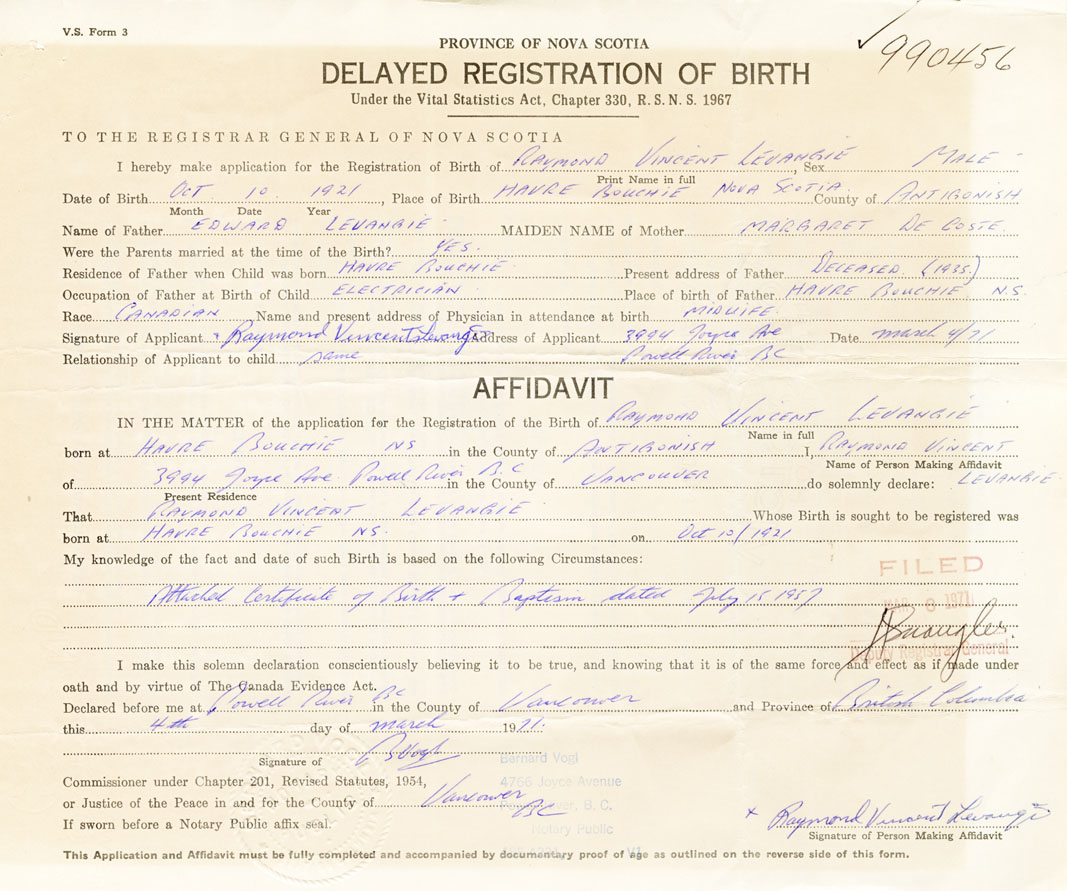 V.S. Form 3
990456
PROVINCE OF NOVA SCOTIA
DELAYED REGISTRATION OF BIRTH
Under the Vital Statistics Act, Chapter 330, R.S.N.S. 1967
TO THE REGISTRAR GENERAL OF NOVA SCOTIA
I hereby make application for the Registration of Birth of RAYMOND VINCENT LEVANGIE, Sex MALE
Print Name in full
Date of Birth OCT 10 1921, Place of Birth HAVRE BOUCHIE NOVA SCOTIA County of ANTIGONISH
Month Date Year
Name of Father EDWARD LEVANGIE MAIDEN NAME of Mother MARGARET DE COSTE
Were the Parents married at the time of the Birth? YES.
Residence of Father when Child was born HAVRE BOUCHIE Present address of Father DECEASED (1935)
Occupation of Father at Birth of Child ELECTRICIAN Place of birth of Father HAVRE BOUCHIE N.S.
Race CANADIAN Name and present address of Physician in attendance at birth MIDWIFE
Signature of Applicant x Raymond Vincent Levangie Address of Applicant 3994 Joyce Ave Date March 4/71
Relationship of Applicant to child same Powell River BC
AFFIDAVIT
IN THE MATTER of the application for the Registration of the Birth of RAYMOND VINCENT LEVANGIE
Name in full
born at HAVRE BOUCHIE NS in the County of ANTIGONISH I, RAYMOND VINCENT
Name of Person Making Affidavit
of 3994 Joyce Ave. Powell River B.C in the County of VANCOUVER do solemnly declare: LEVANGIE
Present Residence
That RAYMOND VINCENT LEVANGIE Whose Birth is sought to be registered was
born at HAVRE BOUCHIE NS. on Oct 10/1921
My knowledge of the fact and date of such Birth is based on the following Circumstances:
FILED
Attached Certificate of Birth + Baptism dated July 15 1957
MAR 1971
Deputy Registrar General
I make this solemn declaration conscientiously believing it to be true, and knowing that it is of the same force and effect as if made under
oath and by virtue of The Canada Evidence Act.
Declared before me at Powell River BC in the County of Vancouver and Province of British Columbia
this 4th day of March 1971.
Signature of B Vogl
Bernard Vogl
Commissioner under Chapter 201, Revised Statutes, 1954,
4766 Joyce Avenue
or Justice of the Peace in and for the County of Vancouver
River, B. C.
BC
If sworn before a Notary Public affix seal.
Notary Public
x Raymond Vincent Levangie
Signature of Person Making Affidavit
This Application and Affidavit must be fully completed and accompanied by documentary proof of age as outlined on the reverse side of this form.